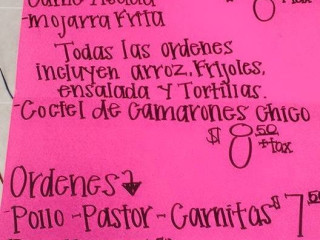 -Mojarra Frita
8 +tax
Todas las ordenes
incluyen arroz, Frijoles,
ensalada y Tortillas.
-Coctel de Camarones Chico
$8.50 +tax
Ordenes
-Pollo -Pastor -Carnitas $7.50